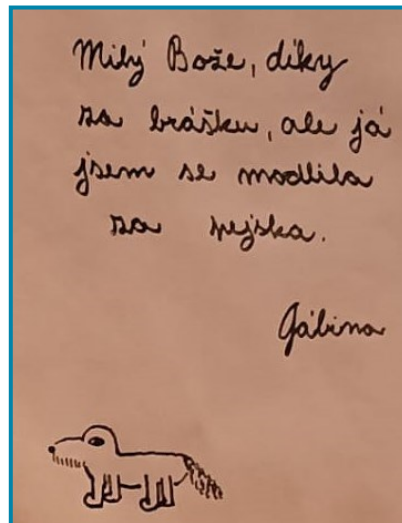 Milý Bože, díky
za brášku, ale já
jsem se modlila
za pejska.
Gábina